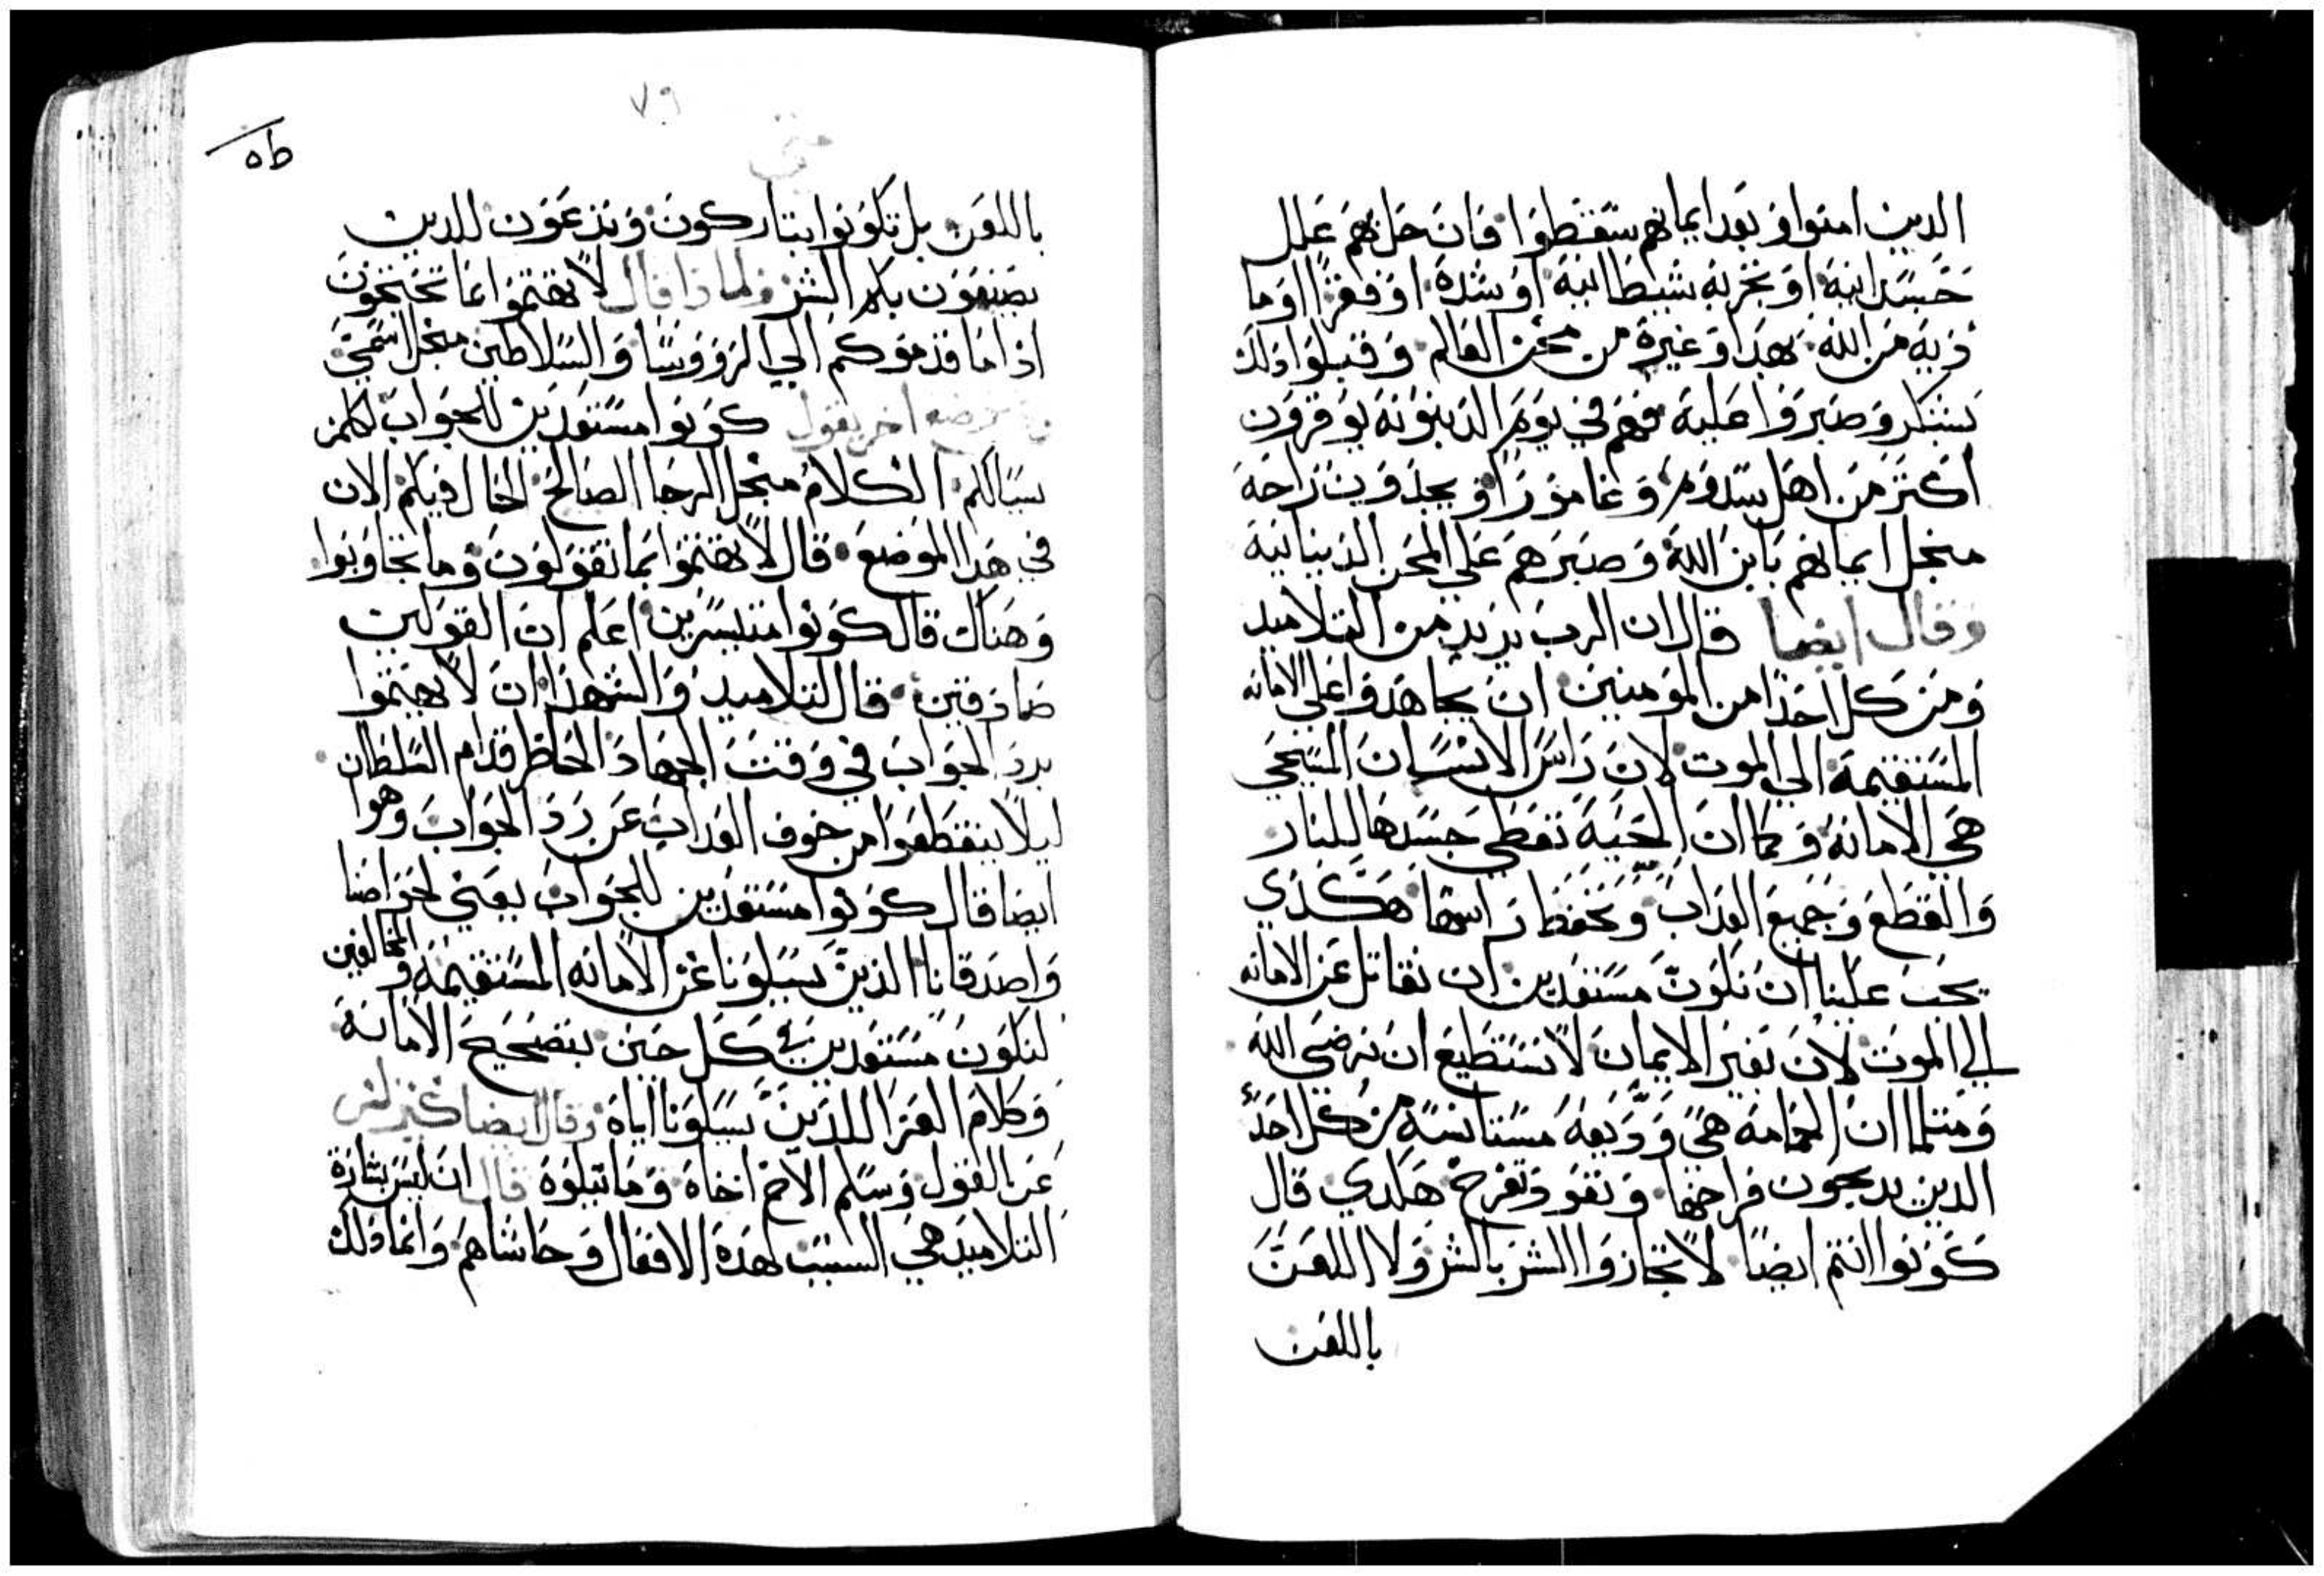 الدين امنوا وبعد ايمانهم سقطوا فان حل بهم علل
جسدانية او تجربة شيطانية او شدة او فقرًا او ما
دية من الله بهدا وغيره من محن العالم وقبلوا دلك
بشكر وصبروا عليه فهم في يوم الدينونة يوقرون
اكتر من اهل سدوم وغامورا ويجدون راحة
منجل ايمانهم بابن الله وصبرهم علي المحن الدنيانية
وقال ايضا قال ان الرب يريد من التلاميد
ومن كل احدًا من المومنين ان يجاهدوا علي الامانه
المستقيمة الي الموت لان راس الانسان المسيحي
هي الامانة وكما ان الحية تعطي جسدها للنار
والقطع وجميع العداب وتحفظ راسها هكدي
يجب علينا ان نكون مستعدين ان نقاتل عن الامانه
الي الموت لان بغير الايمان لا نستطيع ان نرضي الله
ومتلما ان الحمامة هي وديعة مستانسة من كل احدًا
الدين يدبحون فراخها وتعود تفرخ هكدي قال
كونوا انتم ايضًا لا تجازوا الشر بالشر ولا اللعن
باللعن
٧٩
متي
ه ط
باللعن بل تكونوا تباركون وتدعون للدين
يصنعون بكم الشر ولمادا قال لا تهتموا بما تحتجون
ادا ما قدموكم الي الرووسا والسلاطين منجل اسمي
وفي موضع اخر يقول كونوا مستعدين للجواب لكلمن
يسالكم الكلام منجل الرجا الصالح الحال فيكم الان
في هدا الموضع قال لا تهتموا بما تقولون وما تجاوبوا
وهناك قال كونوا متيسرين اعلم ان القولين
صادقين قال للتلاميد والشهدا ان لا يهتموا
برد الجواب في وقت الجهاد الحاظر قدام السلطان
ليلا ينقطعوا من خوف العداب عن رد الجواب وهوا
ايضا قال كونوا مستعدين للجواب يعني لخواصنا
واصدقانا الذين يسيلونا عن الامانه المستقيمة والمخالفين
لنكون مستعدين في كل حين بتصحيح الامانة
وكلام العزا اللدين يسيلونا اياه وقال ايضا
عن القول وسلم الاخ اخاه وما يتلوة قال ان ليس بشارة
التلاميد هي السبب لهدة الافعال وحاشاهم وانما دلك